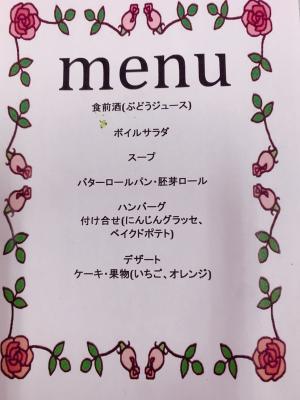 menu
食前酒(ぶどうジュース)
ボイルサラダ
スープ
バターロールパン・胚芽ロール
ハンバーグ
付け合せ(にんじんグラッセ、
ベイクドポテト)
デザート
ケーキ・果物(いちご、オレンジ)